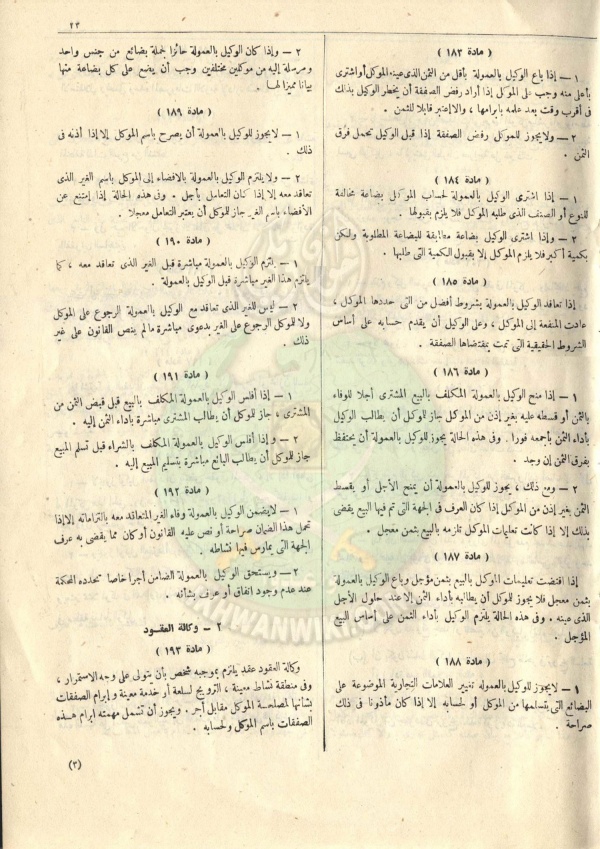 ٢٣
( مادة ١٨٣ )
١ — إذا باع الوكيل بالعمولة بأقل من الثمن الذى عينه الموكل أو اشترى
بأعلى منه وجب على الموكل إذا أراد رفض الصفقة أن يخطر الوكيل بذلك
فى أقرب وقت بعد علمه بابرامها ، والا اعتبر قابلا للثمن .
٢ — ولا يجوز للموكل رفض الصفقة إذا قبل الوكيل تحمل فرق
الثمن .
( مادة ١٨٤ )
١ — إذا اشترى الوكيل بالعمولة لحساب الموكل بضاعة مخالفة
للنوع أو الصنف الذى طلبه الموكل فلا يلزم بقبولها .
٢ — وإذا اشترى الوكيل بضاعة مطابقة للبضاعة المطلوبة ولكن
بكمية أكبر فلا يلزم الموكل إلا بقبول الكمية التى طلبها .
( مادة ١٨٥ )
إذا تعاقد الوكيل بالعمولة بشروط أفضل من التى حددها الموكل ،
عادت المنفعة إلى الموكل ، وعلى الوكيل أن يقدم حسابه على أساس
الشروط الحقيقية التى تمت بمقتضاها الصفقة .
( مادة ١٨٦ )
١ — إذا منح الوكيل بالعمولة المكلف بالبيع المشترى أجلا للوفاء
بالثمن أو قسطه عليه بغير إذن من الموكل جاز للموكل أن يطالب الوكيل
بأداء الثمن بأجمعه فورا . وفى هذه الحالة يجوز للوكيل بالعمولة أن يحتفظ
بفرق الثمن إن وجد .
٢ — ومع ذلك ، يجوز للوكيل بالعمولة أن يمنح الأجل أو يقسط
الثمن بغير إذن من الموكل إذا كان العرف فى الجهة التى تم فيها البيع يقضى
بذلك إلا إذا كانت تعليمات الموكل تلزمه بالبيع بثمن معجل .
( مادة ١٨٧ )
إذا اقتضت تعليمات الموكل بالبيع بثمن مؤجل وباع الوكيل بالعمولة
بثمن معجل فلا يجوز للموكل أن يطالبه بأداء الثمن إلا عند حلول الأجل
الذى عينه . وفى هذه الحالة يلتزم الوكيل بأداء الثمن على أساس البيع
المؤجل .
( مادة ١٨٨ )
١ — لا يجوز للوكيل بالعمولة تغيير العلامات التجارية الموضوعة على
البضائع التى يتسلمها من الموكل أو لحسابه إلا إذا كان مأذونا فى ذلك
صراحة .
٢ — وإذا كان الوكيل بالعمولة حائزا لجملة بضائع من جنس واحد
ومرسلة إليه من موكلين مختلفين وجب أن يضع على كل بضاعة منها
بيانا مميزا لها .
( مادة ١٨٩ )
١ — لا يجوز للوكيل بالعمولة أن يصرح باسم الموكل إلا إذا أذنه فى
ذلك .
٢ — ولا يلتزم الوكيل بالعمولة بالافضاء إلى الموكل باسم الغير الذى
تعاقد معه إلا إذا كان التعامل بأجل . وفى هذه الحالة إذا إمتنع عن
الأفضاء باسم الغير جاز للموكل أن يعتبر التعامل معجلا .
( مادة ١٩٠ )
١ — يلتزم الوكيل بالعمولة مباشرة قبل الغير الذى تعاقد معه ، كما
يلتزم هذا الغير مباشرة قبل الوكيل بالعمولة .
٢ — ليس للغير الذى تعاقد مع الوكيل بالعمولة الرجوع على الموكل
ولا للموكل الرجوع على الغير بدعوى مباشرة مالم ينص القانون على غير
ذلك .
( مادة ١٩١ )
١ — إذا أفلس الوكيل بالعمولة المكلف بالبيع قبل قبض الثمن من
المشترى ، جاز للموكل أن يطالب المشترى مباشرة بأداء الثمن إليه .
٢ — وإذا أفلس الوكيل بالعمولة المكلف بالشراء قبل تسلم المبيع
جاز للموكل أن يطالب البائع مباشرة بتسليم المبيع إليه .
( مادة ١٩٢ )
١ — لا يضمن الوكيل بالعمولة وفاء الغير المتعاقد معه بالتزاماته إلا إذا
تحمل هذا الضمان صراحة أو نص عليه القانون أو كان مما يقضى به عرف
الجهة التى يمارس فيها نشاطه .
٢ — ويستحق الوكيل بالعمولة الضامن أجرا خاصا تحدده المحكمة
عند عدم وجود إتفاق أو عرف بشأنه .
٢ — وكالة العقود
( مادة ١٩٣ )
وكالة العقود عقد يلتزم بموجبه شخص بأن يتولى على وجه الاستمرار ،
وفى منطقة نشاط معينة ، الترويج لسلعة أو خدمة معينة و إبرام الصفقات
بشأنها لمصلحة الموكل مقابل أجر . ويجوز أن تشمل مهمته ابرام هذه
الصفقات باسم الموكل ولحسابه .
(٣)